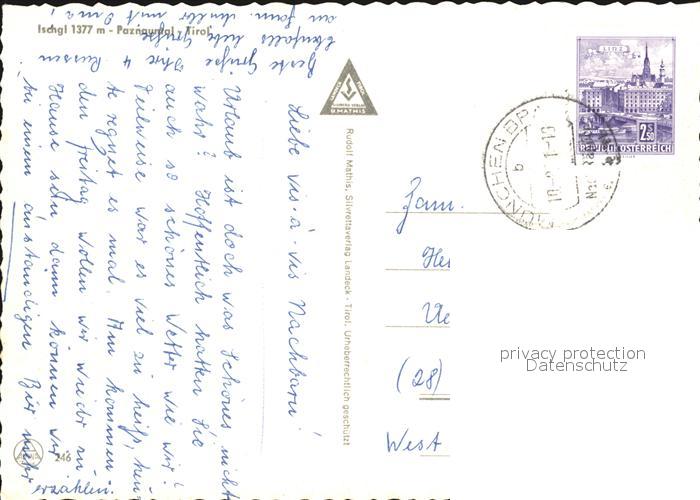 Ischl 1377 m - Paznauntal - Tirol
Liebe vis-à-vis Nachbarn!
Urlaub ist doch was Schönes, nicht
wahr? Hoffentlich hatten Sie
auch so schönes Wetter wie wir!
Teilweise war es viel zu heiß, heu
te regnet es mal. Am kommen
den Freitag wollen wir wieder zu
Hause sein, dann können wir
bei einem anständigen Bier mehr
erzählen.
Beste Grüße Ihre 4
Ebenfalls liebe Grüße
an Fam. mit Oma,
246
Rudolf Mathis, Silvrettaverlag Landeck - Tirol. Urheberrechtlich geschützt
R. MATHIS
LINZ
2.50
REPUBLIK ÖSTERREICH
MÜNCHEN BP
b
Fam.
(28)
West
privacy protection
Datenschutz